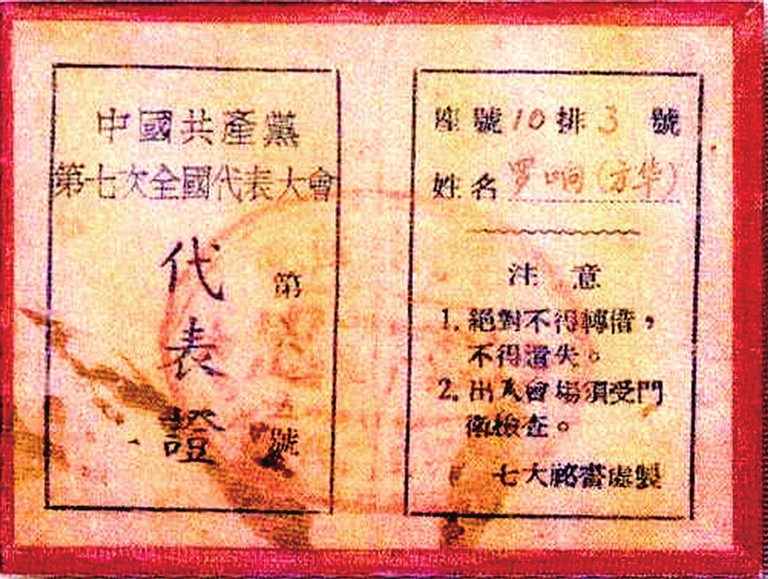 中國共產黨
第七次全國代表大會
代表證
第
號
座號10排3號
姓名罗响(方华)
注意
1. 絕對不得轉借，
不得遺失。
2. 出入會場須受門
衛檢查。
七大祕書處製